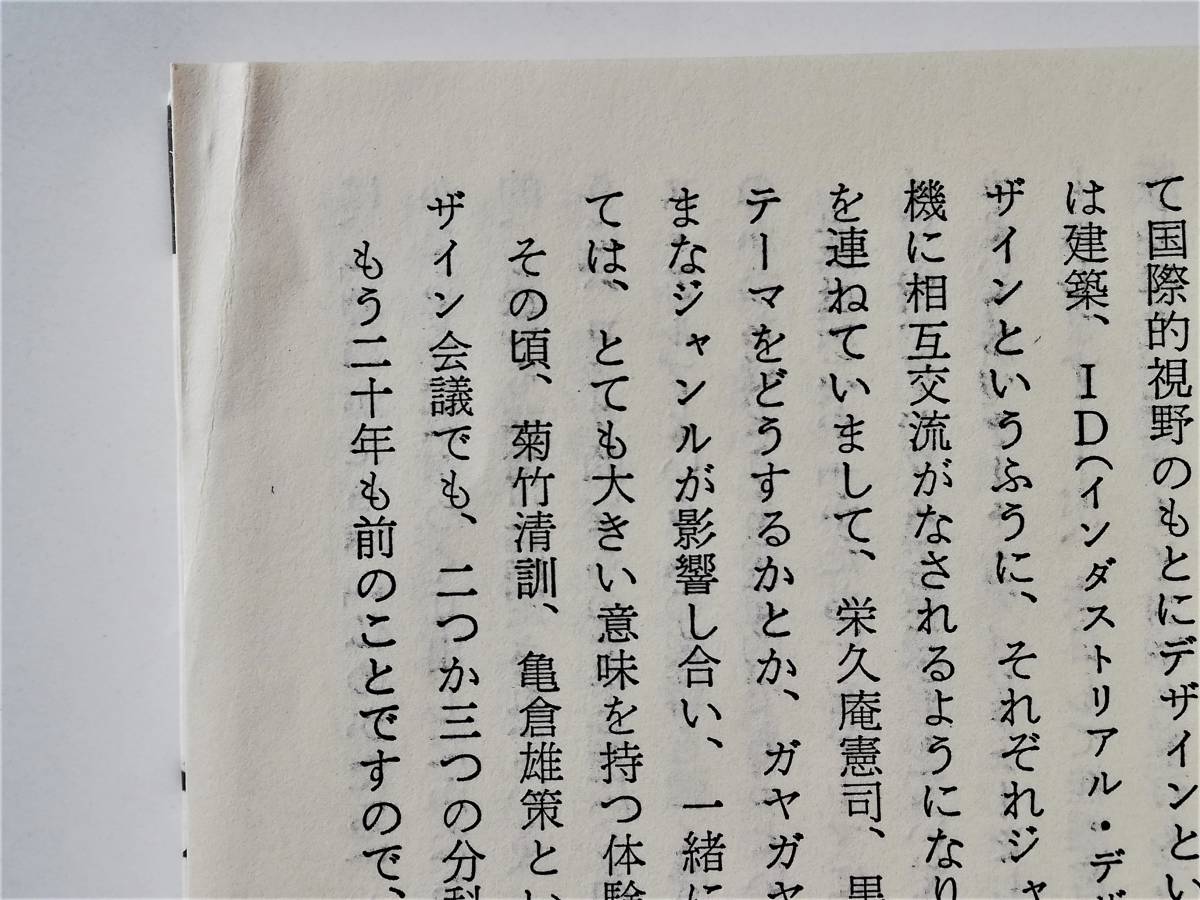 て国際的視野のもとにデザインとい
は建築、ID(インダストリアル・デザ
ザインというふうに、それぞれジャ
機に相互交流がなされるようになり
を連ねていまして、栄久庵憲司、黒
テーマをどうするかとか、ガヤガヤ
まなジャンルが影響し合い、一緒に
ては、とても大きい意味を持つ体験
その頃、菊竹清訓、亀倉雄策とい
ザイン会議でも、二つか三つの分科
もう二十年も前のことですので、